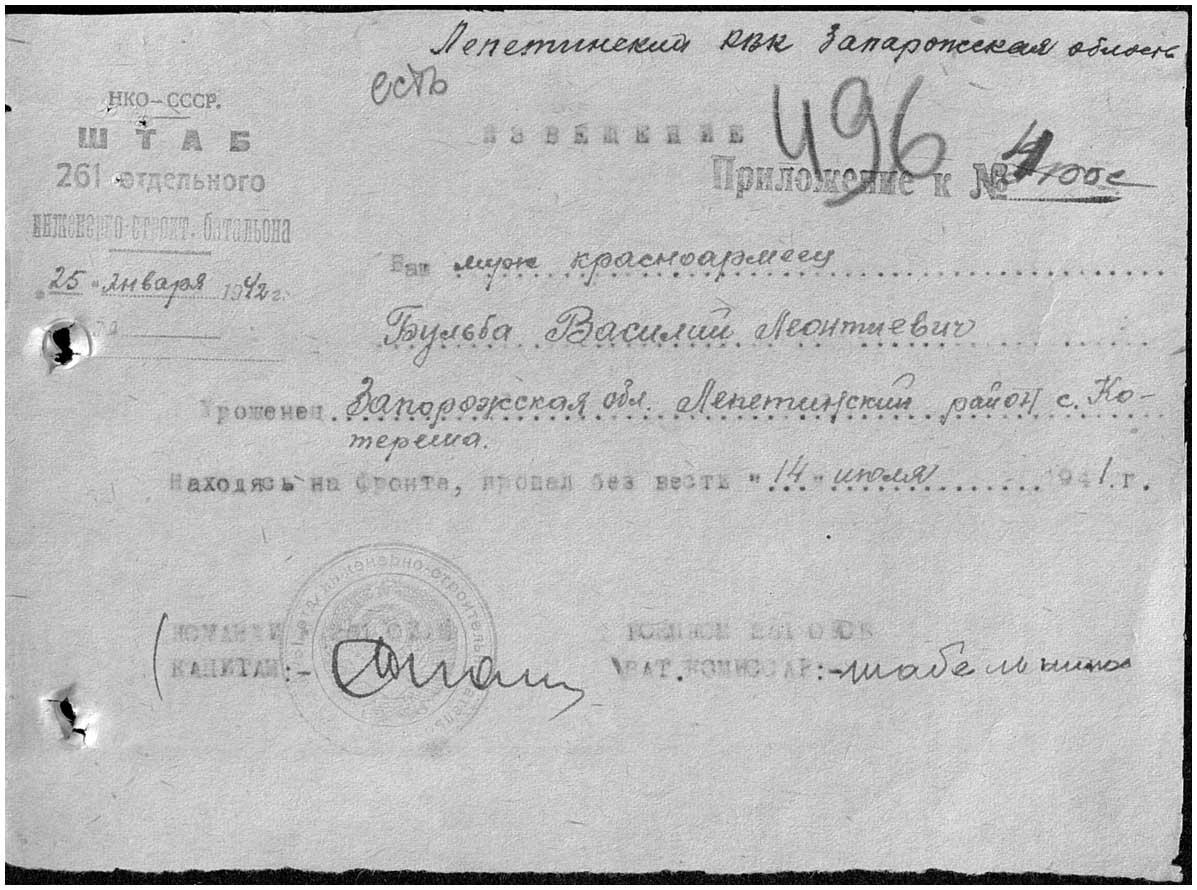 Лепетинский РВК Запарожская область
есть
НКО-СССР.
ШТАБ
261 отдельного
инженерно-строит. батальона
"25" января 1942 г.
ИЗВЕЩЕНИЕ
496
Приложение к №
Ваш муж красноармеец
Бульба Василий Леонтиевич
Уроженец Запорожская обл. Лепетинский район с. Ко-
терема.
Находясь на фронте, пропал без вести "14" июля 1941 г.
КАПИТАН:-
БАТ. КОМИССАР:-